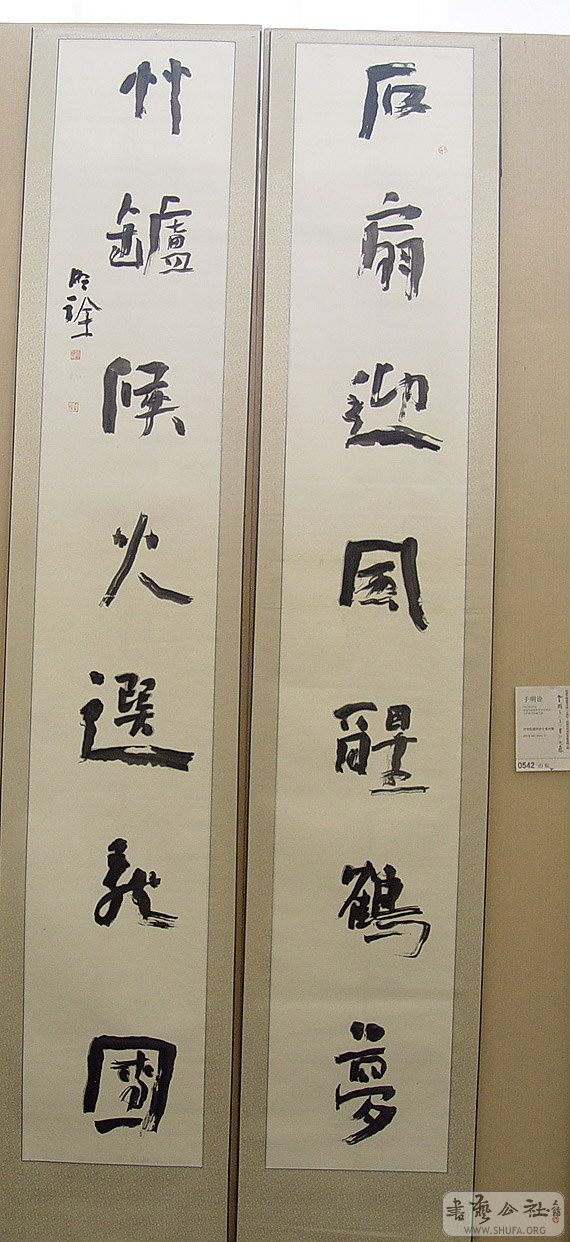 石扇迎風醒鶴夢
竹罏候火選龍團
明詮
于明诠
0542 山东
書藝公社
WWW.SHUFA.ORG